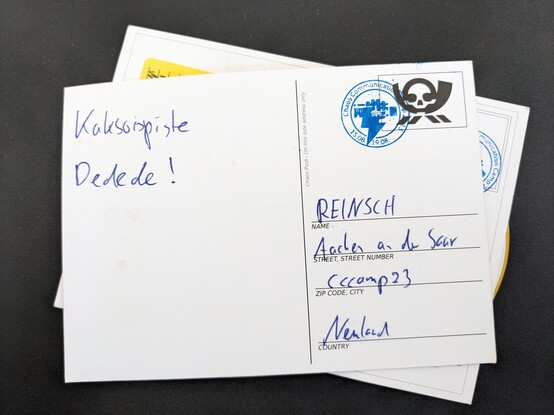 Kaksoispiste
Dedede!
Chaos Post - On this side address only
Chaos Communication
15.08 19.08
REINSCH
NAME
Aachen an der Saar
STREET, STREET NUMBER
cccamp23
ZIP CODE, CITY
Neuland
COUNTRY
ication Camp